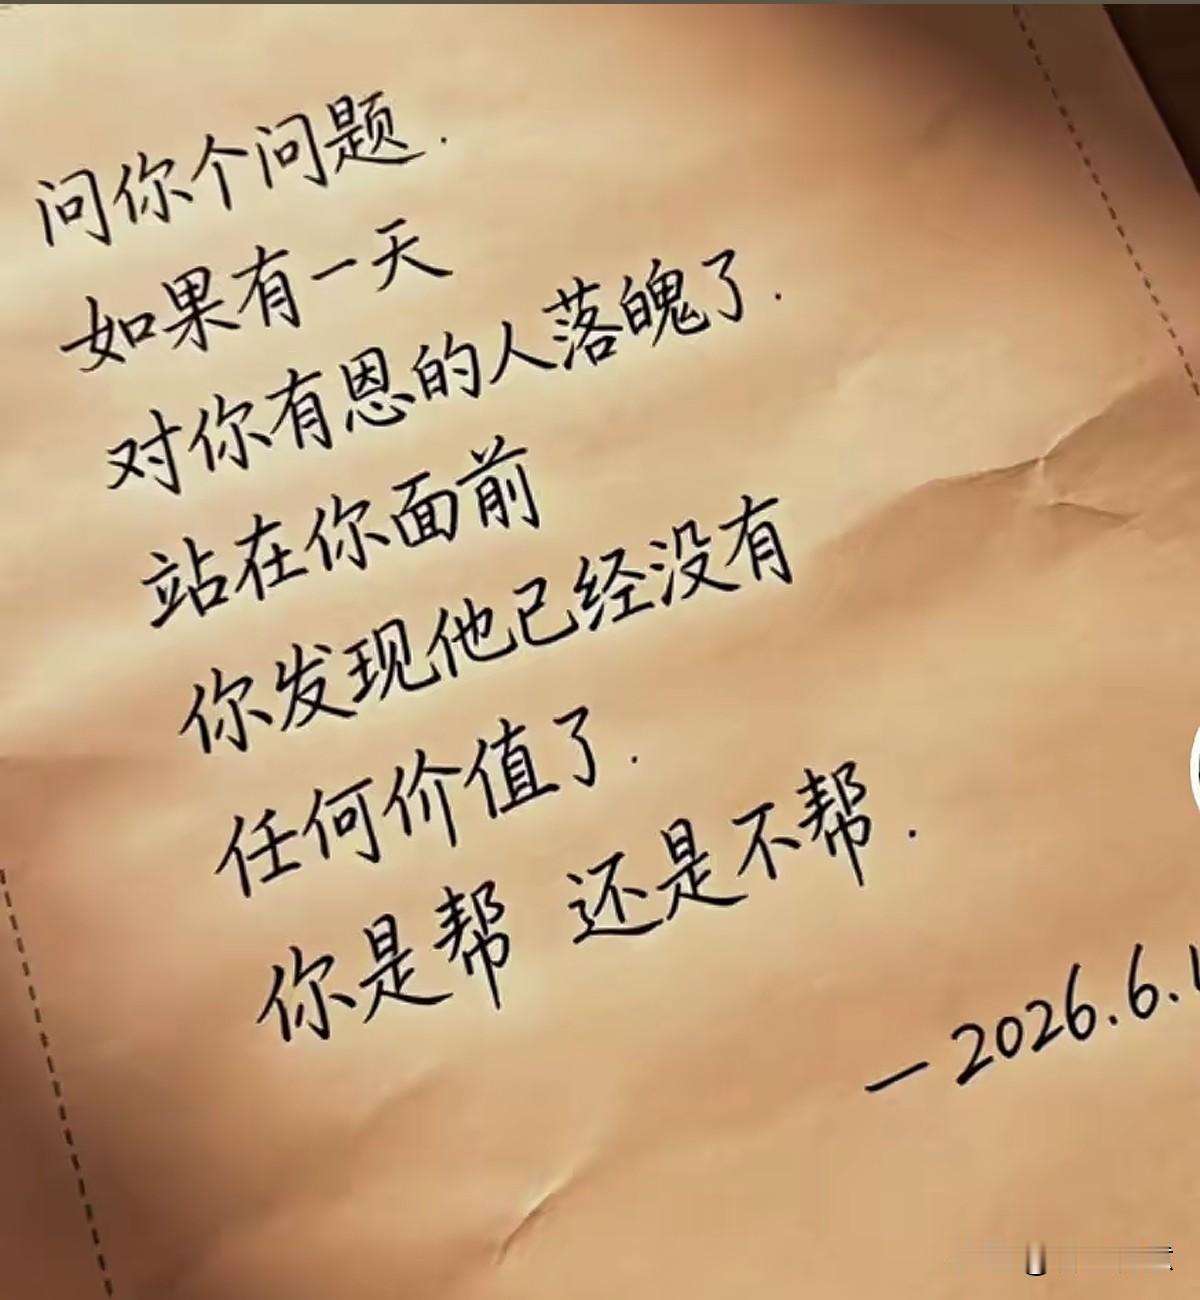 问你个问题.
如果有一天
对你有恩的人落魄了.
站在你面前
你发现他已经没有
任何价值了.
你是帮 还是不帮.
—2026.6.1